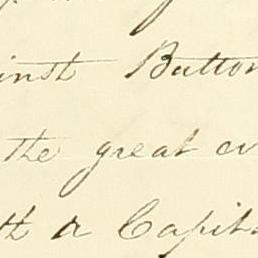 inst Button
the great ev
th a Capit